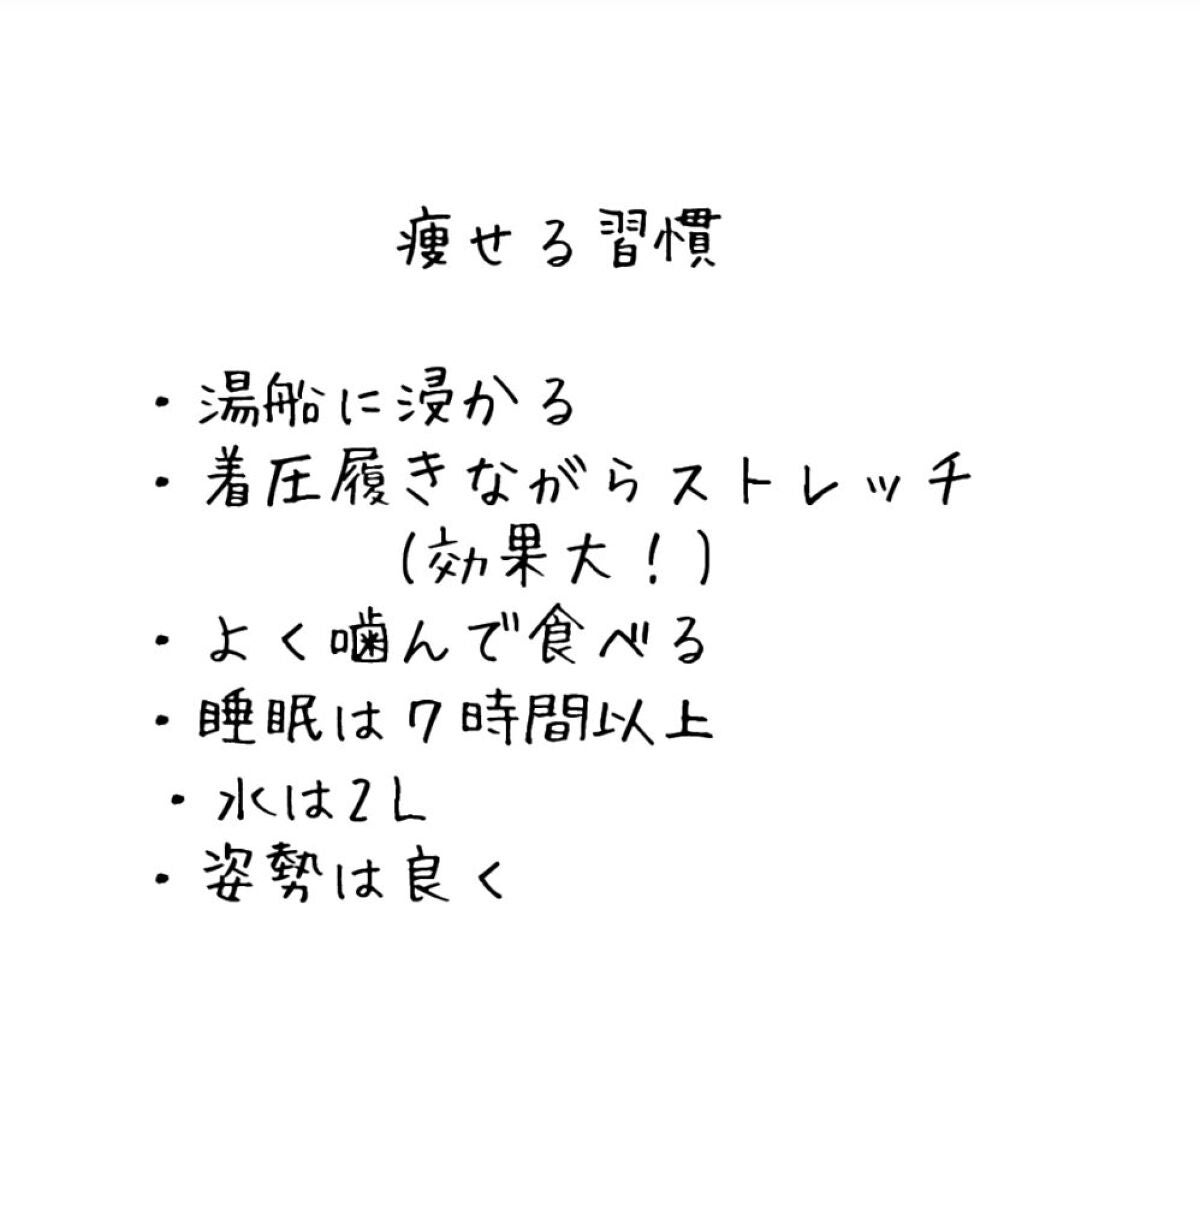 痩せる習慣
・湯船に浸かる
・着圧履きながらストレッチ
(効果大！)
・よく噛んで食べる
・睡眠は7時間以上
・水は2L
・姿勢は良く